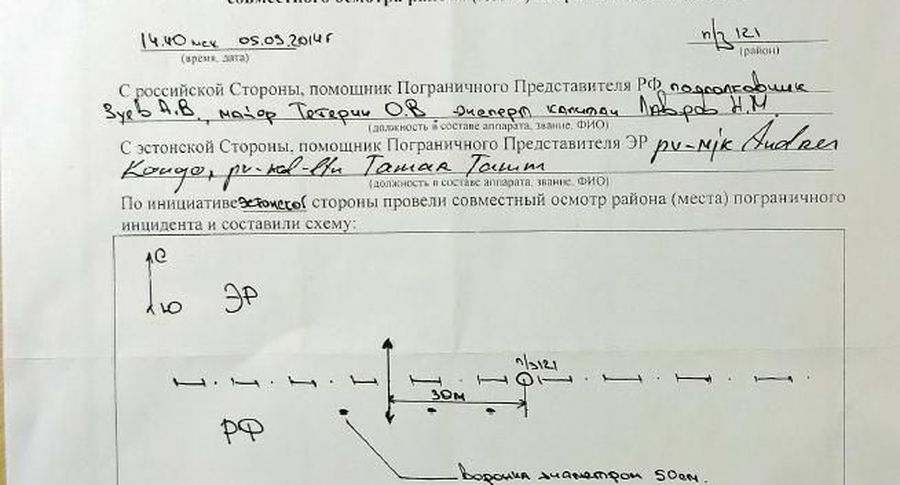 совместного осмотра
14.40 мск 05.09.2014г п/з 121
(время, дата) (район)
С российской Стороны, помощник Пограничного Представителя РФ подполковник
Зуев А.В., майор Тетерин О.В эксперт капитан Лавров Н.М
(должность в составе аппарата, звание, ФИО)
С эстонской Стороны, помощник Пограничного Представителя ЭР pv-mjr Andres
Tamar Tamm
(должность в составе аппарата, звание, ФИО)
По инициативе эстонской стороны провели совместный осмотр района (места) пограничного
инцидента и составили схему:
С
Ю ЭР
п/з 121
30м
РФ
воронка диаметром 50см.